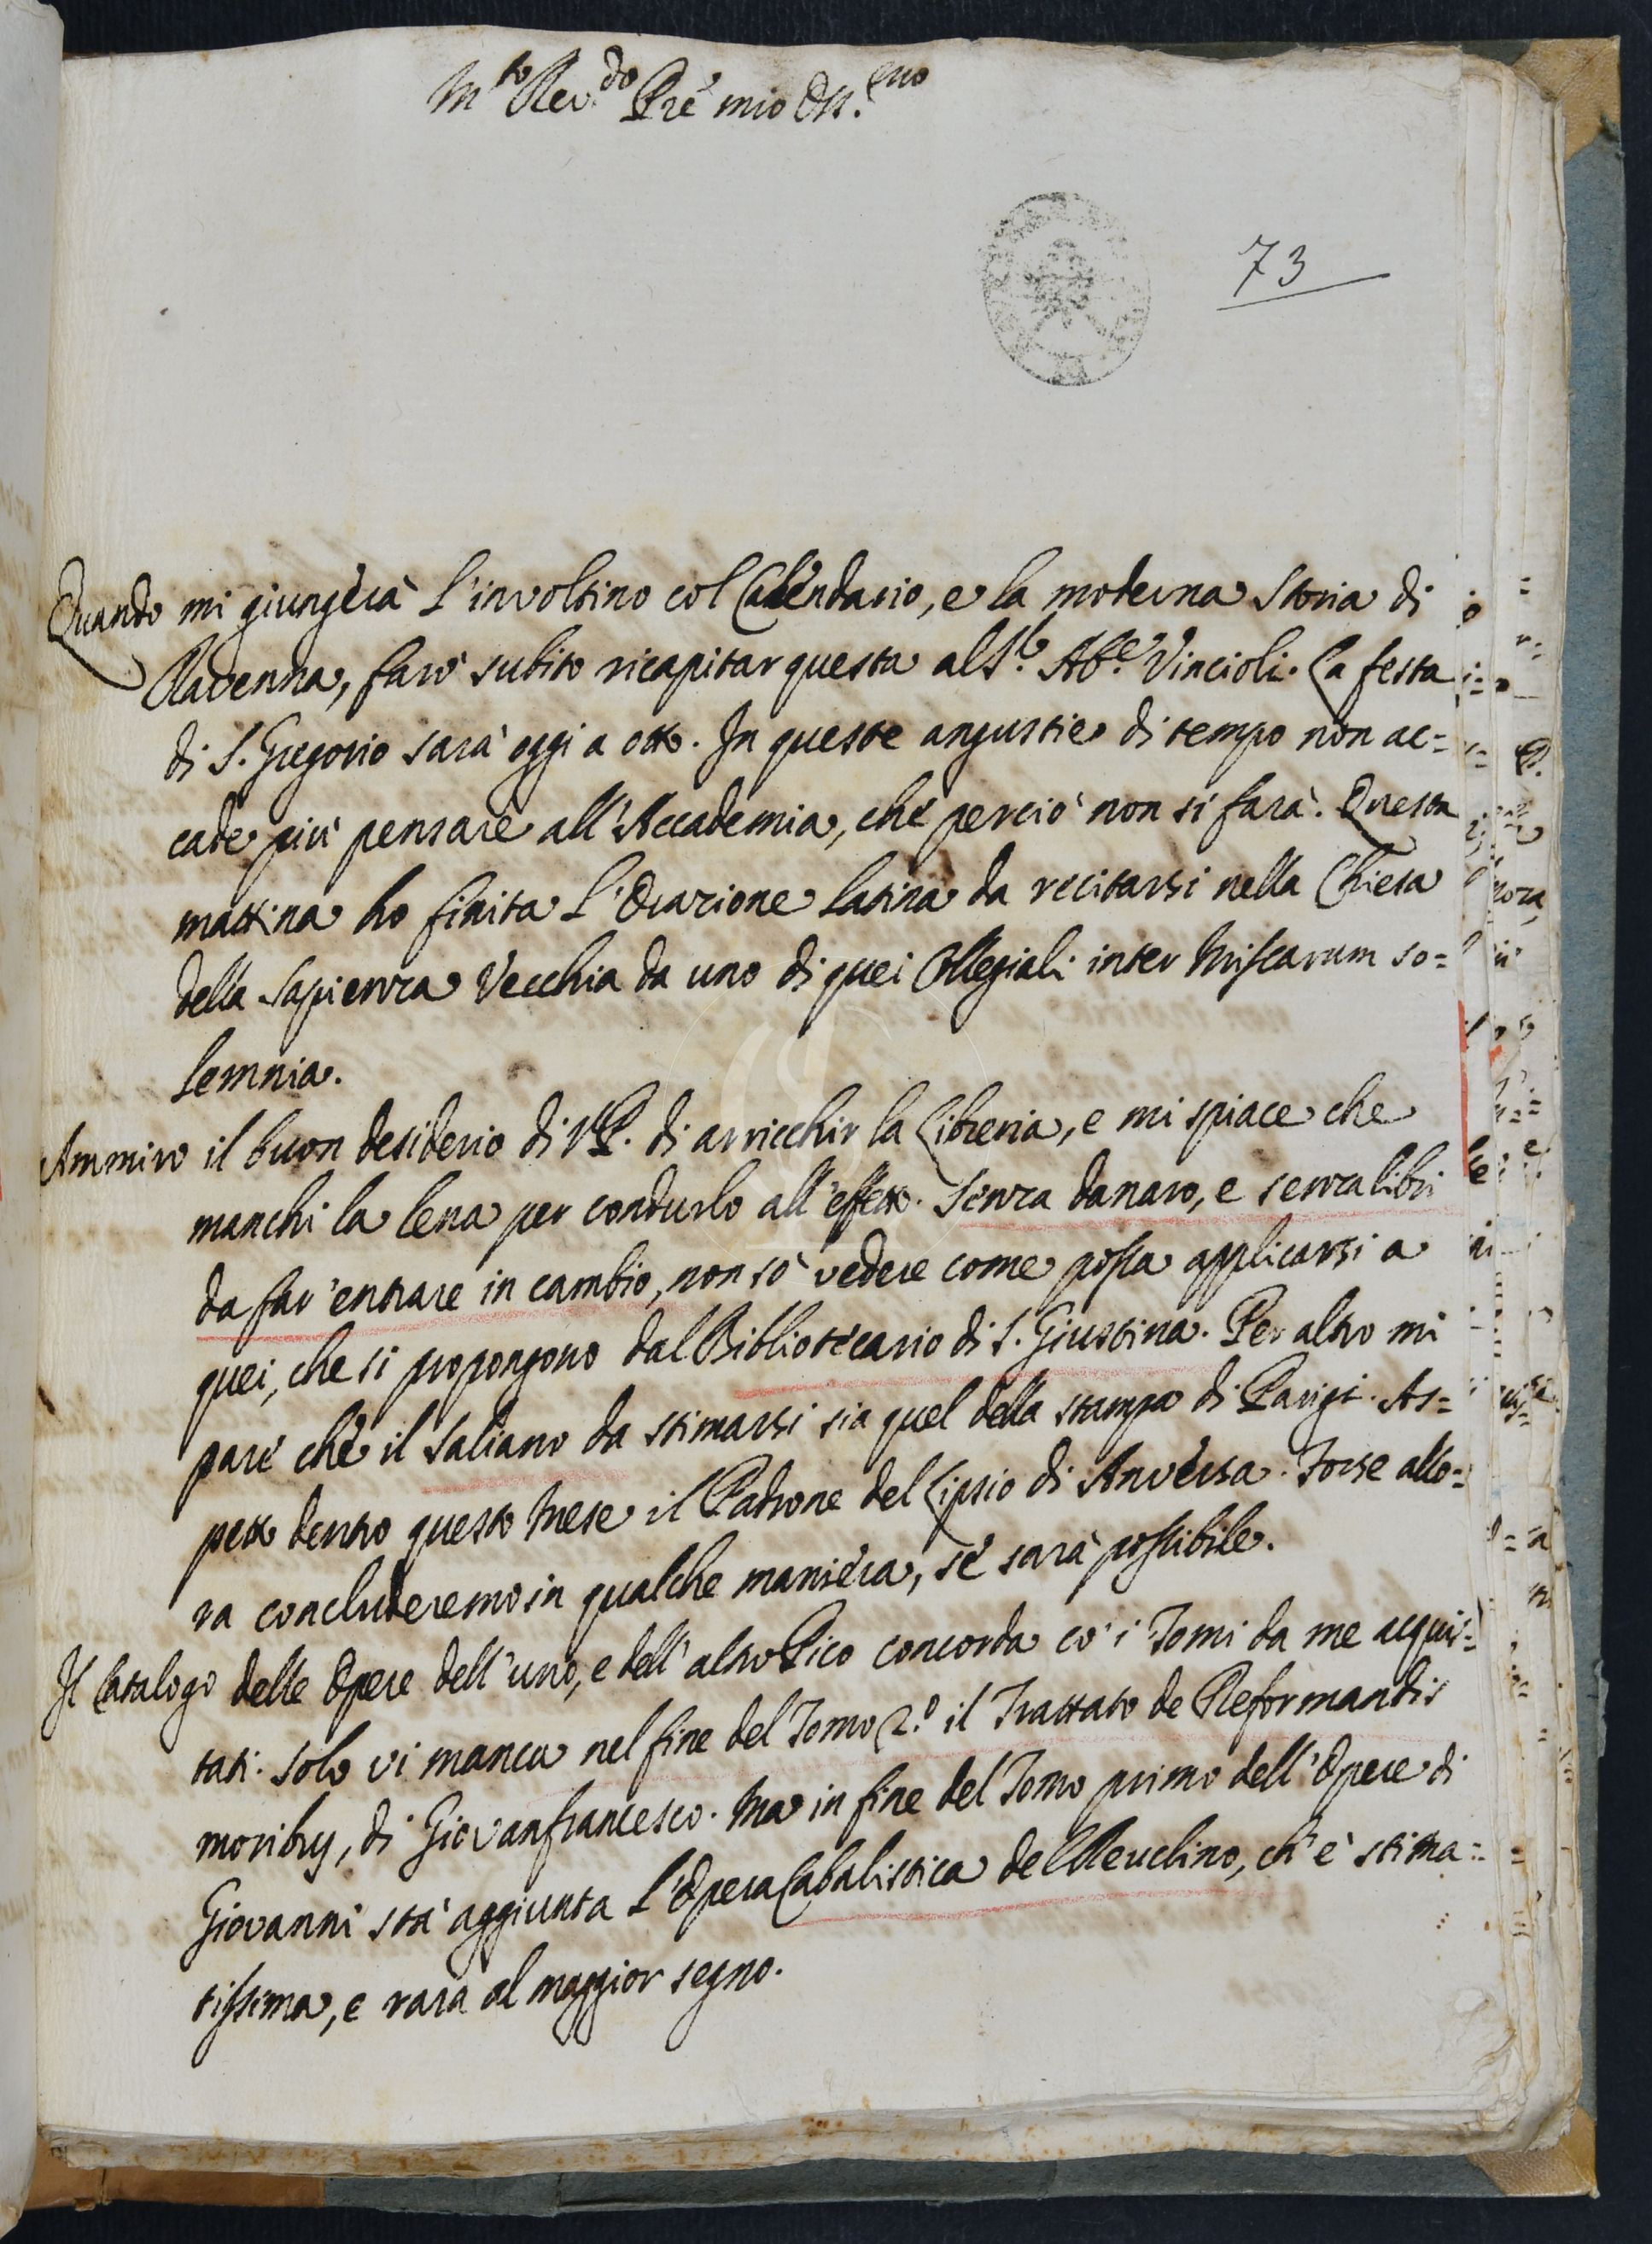 M.to Rev.do Pre mio Oss.mo
73
Quando mi giungerà l'involtino col Calendario, e la moderna Storia di
Ravenna, farò subito ricapitar questa al S.r Ab.e Vincioli. La festa
di S. Gregorio sarà oggi a otto. In queste angustie di tempo non ac=
cade più pensare all'Accademia, che perciò non si farà. Questa
mattina ho finita l'Orazione latina da recitarsi nella Chiesa
della Sapienza Vecchia da uno di quei Collegiali inter Missarum so=
lemnia.
Ammiro il buon desiderio di V.P. di arricchir la Libreria, e mi spiace che
manchi la lena per condurlo all'effetto. Senza danaro, e senza libri
da far'entrare in cambio, non sò vedere come possa applicarsi a
quei, che si propongono dal Bibliotecario di S. Giustina. Per altro mi
pare che il Saliano da stimarsi sia quel della stampa di Parigi. As=
petto dentro questo Mese il Padrone del Lipsio di Anversa. Forse allo=
ra concluderemo in qualche maniera, se sarà possibile.
Il Catalogo delle Opere dell'uno, e dell'altro Pico concorda co' i Tomi da me acquis=
tati. Solo vi manca nel fine del Tomo 2.o il Trattato de Reformandis
moribus, di Giovanfrancesco. Ma in fine del Tomo primo dell'Opere di
Giovanni stà aggiunta l'Opera Cabalistica del Reuclino, ch'è stima=
tissima, e rara al maggior segno.